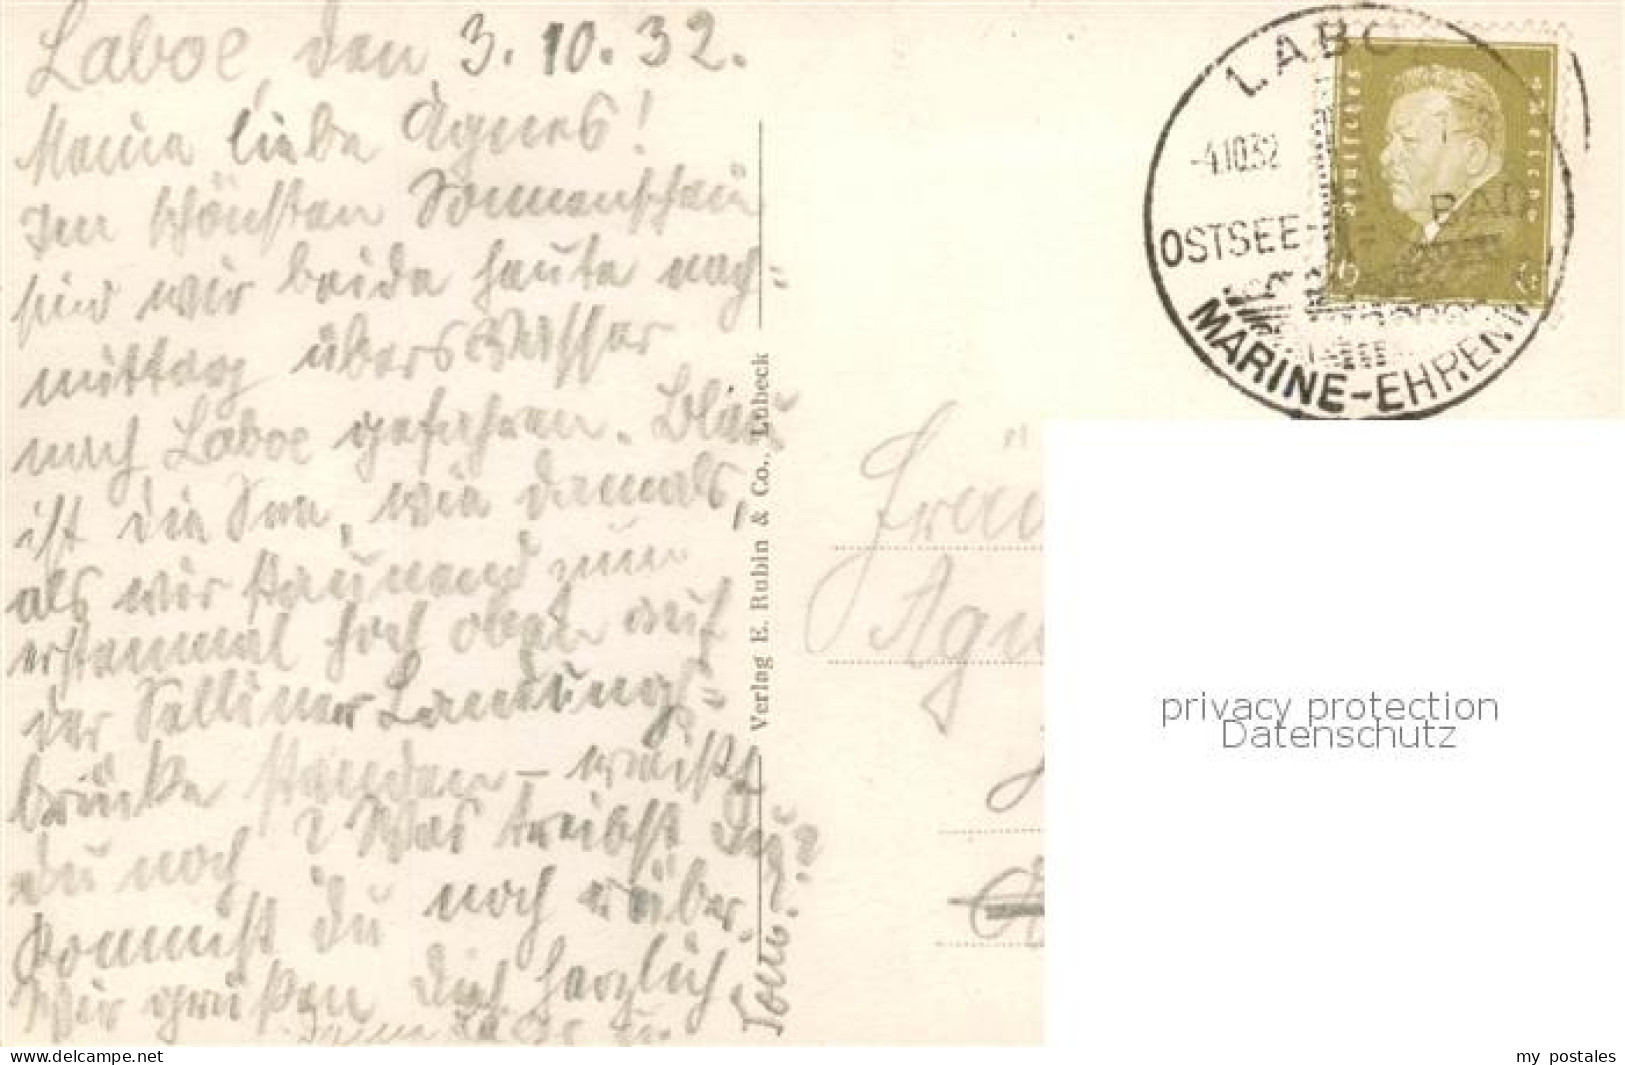 Laboe, den 3.10.32.
Meine liebe Agnes!
Im schönsten Sonnenschein
sind wir beide heute nach=
mittag übers Wasser
nach Laboe gefahren. Blau
ist die See, wie damals,
als wir staunend zum
erstenmal hoch oben auf
der Selliner Landungs=
brücke standen – weißt
du noch? Was treibst Du?
Kommst du noch rüber
Wir grüßen dich herzlich
Verlag E. Rubin & Co., Lübeck
LABO
-4.10.32
OSTSEE BAD
MARINE-EHRENM
Deutsches Reich
6 6
Fräu
Agn
privacy protection
Datenschutz
www.delcampe.net
my_postales